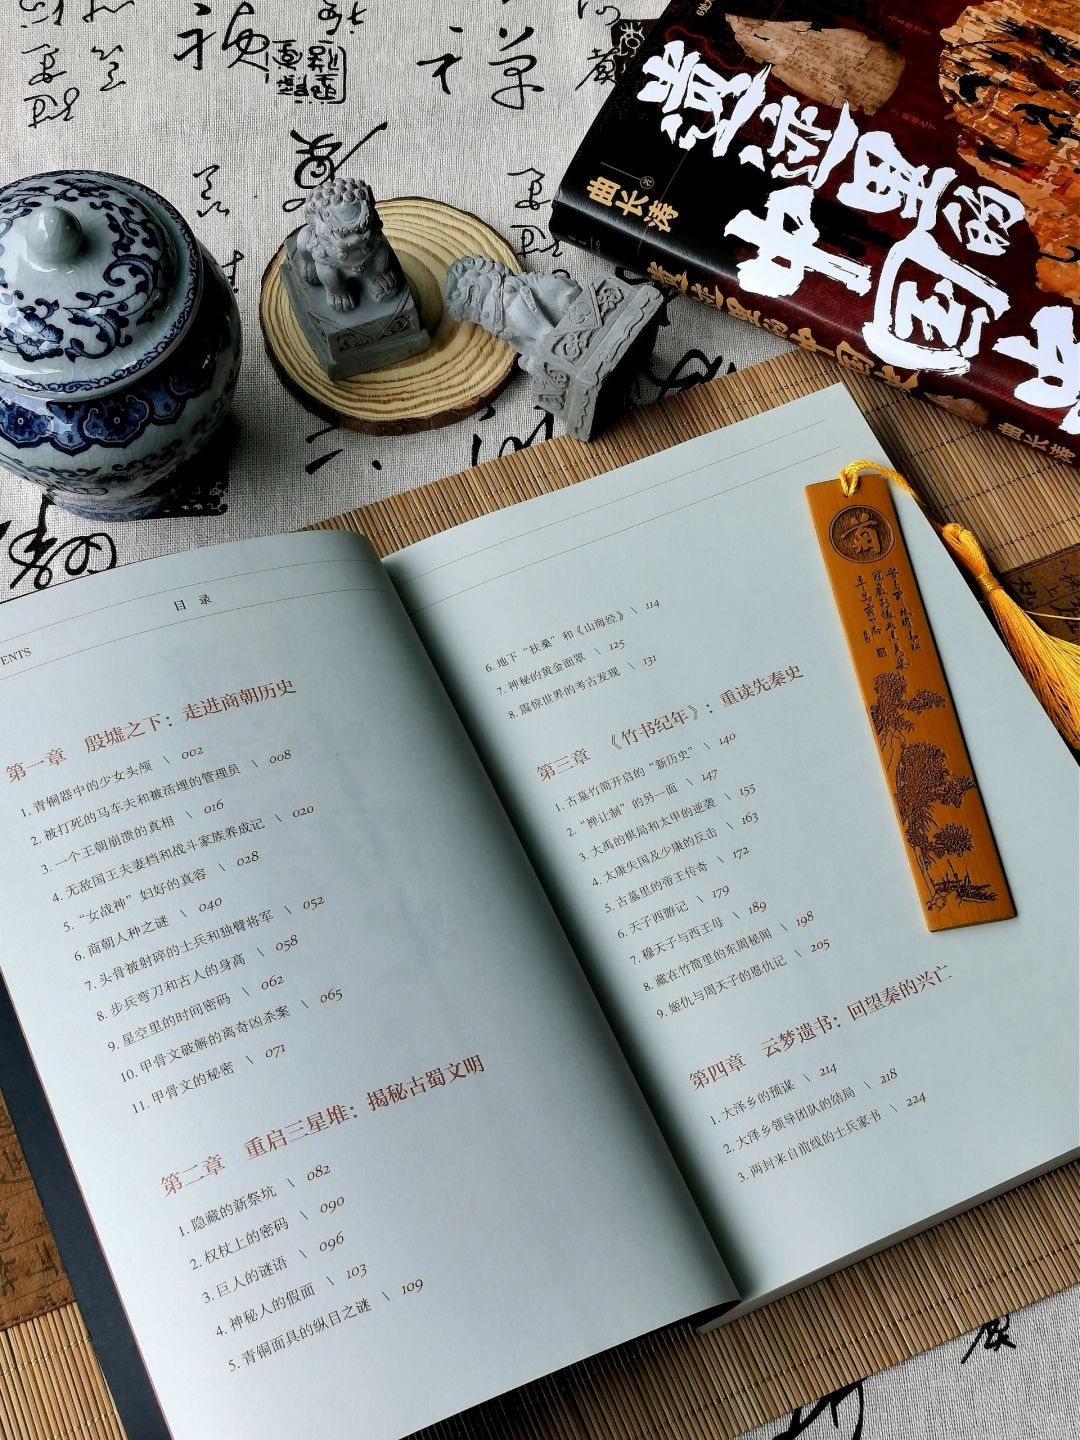 遗迹里的
中国
曲长涛 著
遗迹里的中国史
曲长涛
ENTS
目 录
第一章 殷墟之下：走进商朝历史
1. 青铜器中的少女头颅 \ 002
2. 被打死的马车夫和被活埋的管理员 \ 008
3. 一个王朝崩溃的真相 \ 016
4. 无敌国王夫妻档和战斗家族养成记 \ 020
5. “女战神”妇好的真容 \ 028
6. 商朝人种之谜 \ 040
7. 头骨被射碎的士兵和独臂将军 \ 052
8. 步兵弯刀和古人的身高 \ 058
9. 星空里的时间密码 \ 062
10. 甲骨文破解的离奇凶杀案 \ 065
11. 甲骨文的秘密 \ 071
第二章 重启三星堆：揭秘古蜀文明
1. 隐藏的新祭坑 \ 082
2. 权杖上的密码 \ 090
3. 巨人的谜语 \ 096
4. 神秘人的假面 \ 103
5. 青铜面具的纵目之谜 \ 109
6. 地下“扶桑”和《山海经》 \ 114
7. 神秘的黄金面罩 \ 125
8. 震惊世界的考古发现 \ 131
第三章 《竹书纪年》：重读先秦史
1. 古墓竹简开启的“新历史” \ 140
2. “禅让制”的另一面 \ 147
3. 大禹的棋局和太甲的逆袭 \ 155
4. 太康失国及少康的反击 \ 163
5. 古墓里的帝王传奇 \ 172
6. 天子西游记 \ 179
7. 穆天子与西王母 \ 189
8. 藏在竹简里的东周秘闻 \ 198
9. 姬仇与周天子的恩仇记 \ 205
第四章 云梦遗书：回望秦的兴亡
1. 大泽乡的预谋 \ 214
2. 大泽乡领导团队的结局 \ 218
3. 两封来自前线的士兵家书 \ 224